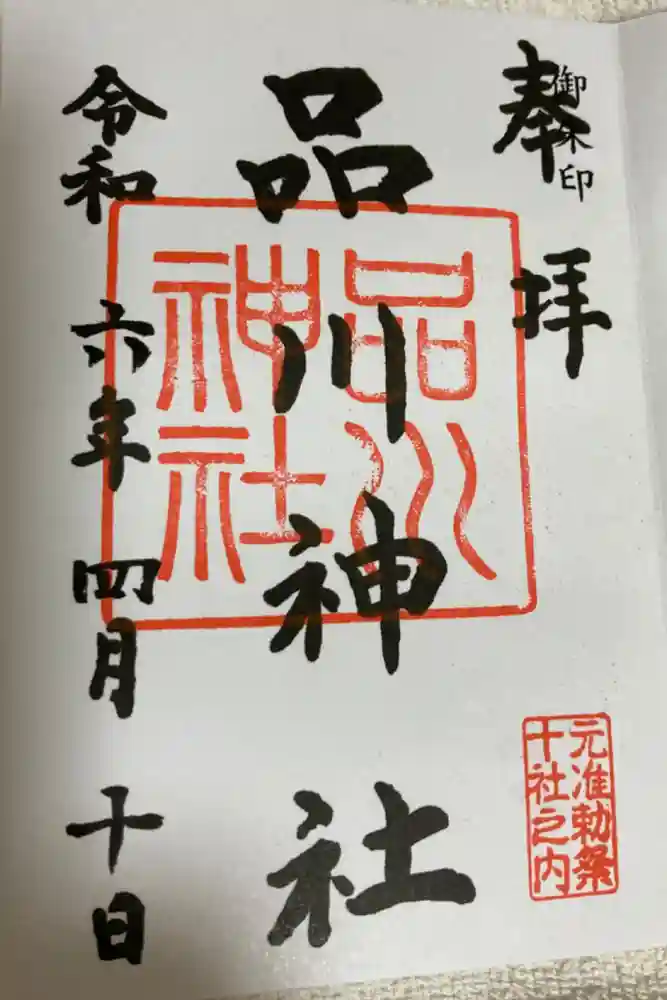 御朱印
奉拝
品川神社
令和六年四月十日
品川
神社
元准勅祭
十社之内